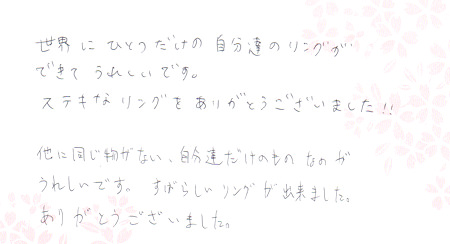 世界にひとつだけの自分達のリングが
できてうれしいです。
ステキなリングをありがとうございました!!
他に同じ物がない、自分達だけのものなのが
うれしいです。すばらしいリングが出来ました。
ありがとうございました。